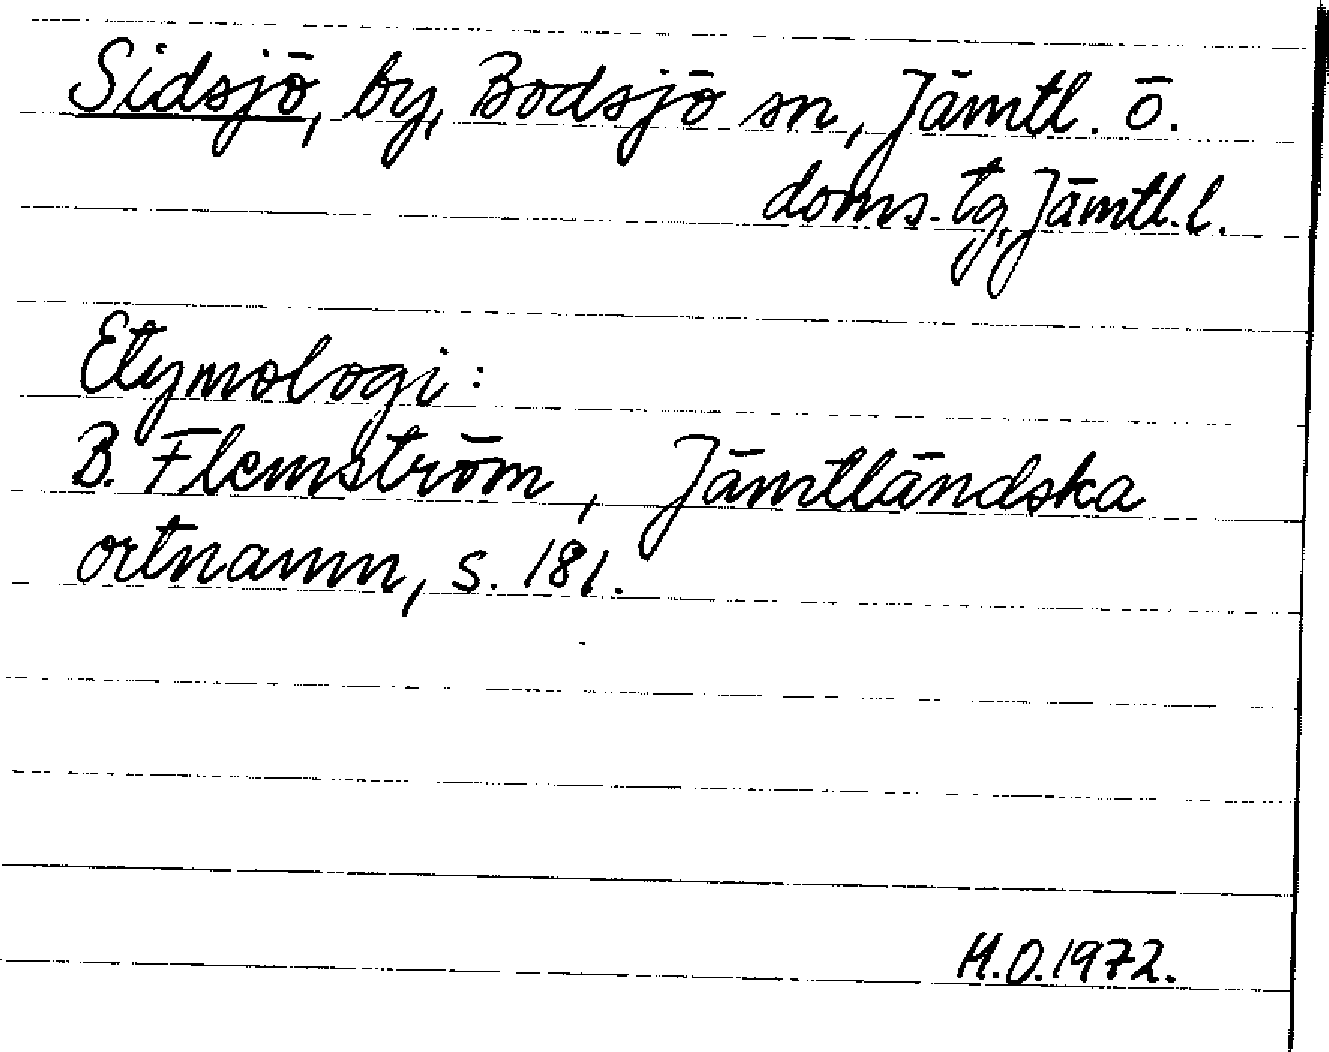 Sidsjö, by, Bodsjö sn, Jämtl. ö.
doms. tg, Jämtl. l.
Etymologi:
B. Flemström, Jämtländska
ortnamn, s. 181.
H.O. 1972.